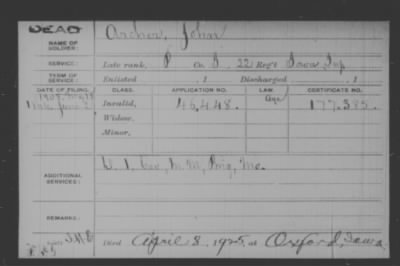 DEAD
NAME OF SOLDIER: Archer, John
SERVICE: Late rank, P Co. I, 22 Reg't Iowa Inf
TERM OF SERVICE: Enlisted , 1 Discharged , 1
DATE OF FILING. CLASS. APPLICATION NO. LAW. CERTIFICATE NO.
Invalid, 46,448. Age 177,385.
Widow,
Minor,
ADDITIONAL SERVICES:
REMARKS:
Died April 8, 1925, at Oxford, Iowa